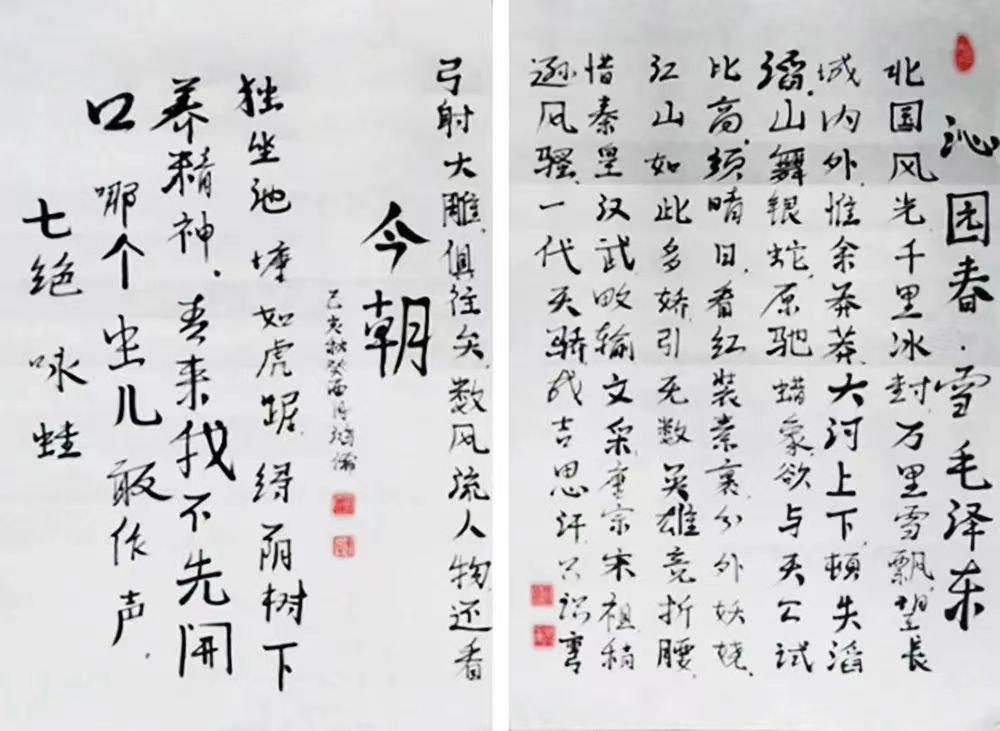 沁园春·雪 毛泽东
北国风光千里冰封万里雪飘望长
城内外惟余莽莽大河上下顿失滔
滔山舞银蛇原驰蜡象欲与天公试
比高须晴日看红装素裹分外妖娆
江山如此多娇引无数英雄竞折腰
惜秦皇汉武略输文采唐宗宋祖稍
逊风骚一代天骄成吉思汗只识弯
弓射大雕俱往矣数风流人物还看
今朝
己亥秋癸酉月
独坐池塘如虎踞绿阴树下
养精神春来我不先開
口哪个虫儿敢作声
七绝 咏蛙